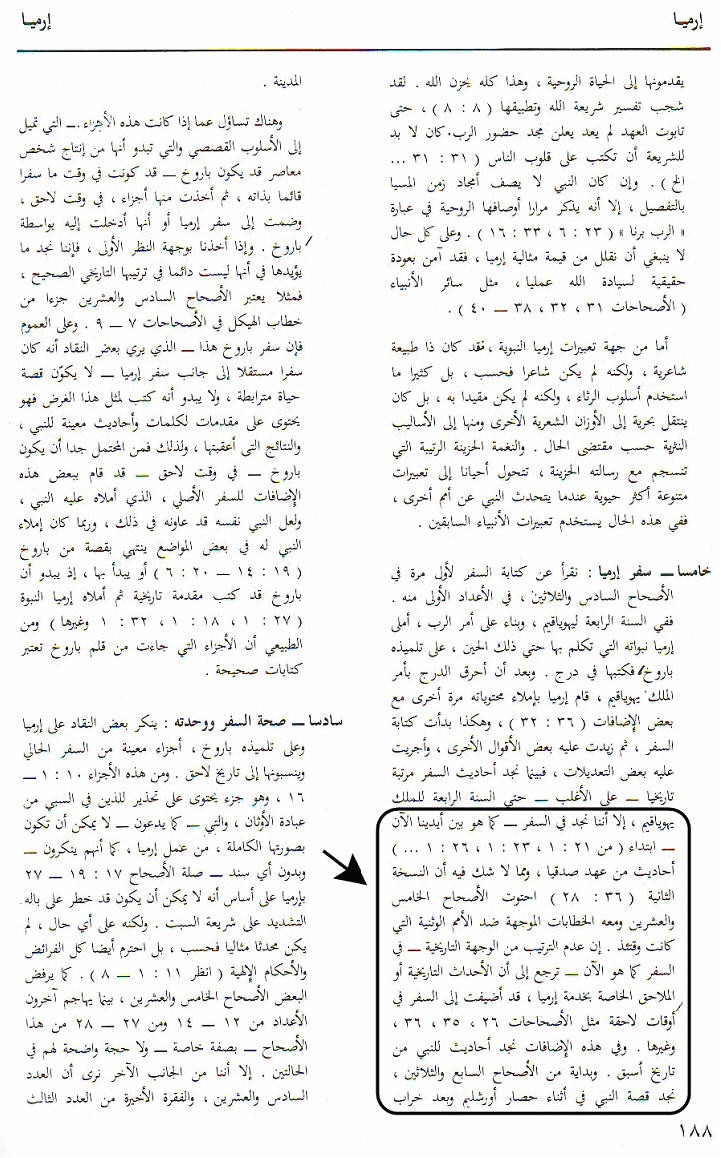 إرميا
إرميا
يقدمونها إلى الحياة الروحية ، وهذا كله يحزن الله . لقد
شجب تفسير شريعة الله وتطبيقها ( ٨ : ٨ ) ، حتى
تابوت العهد لم يعد يعلن مجد حضور الرب . كان لا بد
للشريعة أن تكتب على قلوب الناس ( ٣١ : ٣١ ...
الخ ) . وإن كان النبي لا يصف أمجاد زمن المسيا
بالتفصيل ، إلا أنه يذكر مرارا أوصافها الروحية في عبارة
« الرب برنا » ( ٢٣ : ٦ ، ٣٣ : ١٦ ) . وعلى كل حال
لا ينبغي أن نقلل من قيمة مثالية إرميا ، فقد آمن بعودة
حقيقية لسيادة الله عمليا ، مثل سائر الأنبياء
( الأصحاحات ٣١ ، ٣٢ ، ٣٨ ــ ٤٠ ) .
أما من جهة تعبيرات إرميا النبوية ، فقد كان ذا طبيعة
شاعرية ، ولكنه لم يكن شاعرا فحسب ، بل كثيرا ما
استخدم أسلوب الرثاء ، ولكنه لم يكن مقيدا به ، بل كان
ينتقل بحرية إلى الأوزان الشعرية الأخرى ومنها إلى الأساليب
النثرية حسب مقتضى الحال . والنغمة الحزينة الرتيبة التي
تنسجم مع رسالته الحزينة ، تتحول أحيانا إلى تعبيرات
متنوعة أكثر حيوية عندما يتحدث النبي عن أمم أخرى ،
ففي هذه الحال يستخدم تعبيرات الأنبياء السابقين .
خامسا ــ سفر إرميا : نقرأ عن كتابة السفر لأول مرة في
الأصحاح السادس والثلاثين ، في الأعداد الأولى منه .
ففي السنة الرابعة ليهوياقيم ، وبناء على أمر الرب ، أملى
إرميا نبواته التي تكلم بها حتي ذلك الحين ، على تلميذه
باروخ فكتبها في درج . وبعد أن أحرق الدرج بأمر
الملك يهوياقيم ، قام إرميا بإملاء محتوياته مرة أخرى مع
بعض الإضافات ( ٣٦ : ٣٢ ) ، وهكذا بدأت كتابة
السفر ، ثم زيدت عليه بعض الأقوال الأخرى ، وأجريت
عليه بعض التعديلات ، فبينما نجد أحاديث السفر مرتبة
تاريخيا ــ على الأغلب ــ حتي السنة الرابعة للملك
يهوياقيم ، إلا أننا نجد في السفر ــ كما هو بين أيدينا الآن
ــ ابتداء ( من ٢١ : ١ ، ٢٣ : ١ ، ٢٦ : ١ ... )
أحاديث من عهد صدقيا ، ومما لا شك فيه أن النسخة
الثانية ( ٣٦ : ٢٨ ) احتوت الأصحاح الخامس
والعشرين ومعه الخطابات الموجهة ضد الأمم الوثنية التي
كانت وقتئذ . إن عدم الترتيب من الوجهة التاريخية ــ في
السفر كما هو الآن ــ ترجع إلى أن الأحداث التاريخية أو
الملاحق الخاصة بخدمة إرميا ، قد أضيفت إلى السفر في
أوقات لاحقة مثل الأصحاحات ٢٦ ، ٣٥ ، ٣٦ ،
وغيرها . وفي هذه الإضافات نجد أحاديث للنبي من
تاريخ أسبق . وبداية من الأصحاح السابع والثلاثين ،
نجد قصة النبي في أثناء حصار أورشليم وبعد خراب
المدينة .
وهناك تساؤل عما إذا كانت هذه الأجزاء ــ التي تميل
إلى الأسلوب القصصي والتي تبدو أنها من إنتاج شخص
معاصر قد يكون باروخ ــ قد كونت في وقت ما سفرا
قائما بذاته ، ثم أخذت منها أجزاء ، في وقت لاحق ،
وضمت إلى سفر إرميا أو أنها أدخلت إليه بواسطة
باروخ . وإذا أخذنا بوجهة النظر الأولى ، فإننا نجد ما
يؤيدها في أنها ليست دائما في ترتيبها التاريخي الصحيح ،
فمثلا يعتبر الأصحاح السادس والعشرين جزءا من
خطاب الهيكل في الأصحاحات ٧ ــ ٩ . وعلى العموم
فإن سفر باروخ هذا ــ الذي يري بعض النقاد أنه كان
سفرا مستقلا إلى جانب سفر إرميا ــ لا يكوّن قصة
حياة مترابطة ، ولا يبدو أنه كتب لمثل هذا الغرض فهو
يحتوى على مقدمات لكلمات وأحاديث معينة للنبي ،
والنتائج التى أعقبتها ، ولذلك فمن المحتمل جدا أن يكون
باروخ ــ في وقت لاحق ــ قد قام ببعض هذه
الإضافات للسفر الأصلي ، الذي أملاه عليه النبي ،
ولعل النبي نفسه قد عاونه في ذلك ، وربما كان إملاء
النبي له في بعض المواضع ينتهي بقصة من باروخ
( ١٩ : ١٤ ــ ٢٠ : ٦ ) أو يبدأ بها ، إذ يبدو أن
باروخ قد كتب مقدمة تاريخية ثم أملاه إرميا النبوة
( ٢٧ : ١ ، ١٨ : ١ ، ٣٢ : ١ وغيرها ) ومن
الطبيعي أن الأجزاء التي جاءت من قلم باروخ تعتبر
كتابات صحيحة .
سادسا ــ صحة السفر ووحدته : ينكر بعض النقاد على إرميا
وعلى تلميذه باروخ ، أجزاء معينة من السفر الحالي
وينسبونها إلى تاريخ لاحق . ومن هذه الأجزاء ١٠ : ١ ــ
١٦ ، وهو جزء يحتوى على تحذير للذين في السبي من
عبادة الأوثان ، والتي ــ كما يدعون ــ لا يمكن أن تكون
بصورتها الكاملة ، من عمل إرميا ، كما أنهم ينكرون ــ
وبدون أي سند ــ صلة الأصحاح ١٧ : ١٩ ــ ٢٧
بإرميا على أساس أنه لا يمكن أن يكون قد خطر على باله
التشديد على شريعة السبت . ولكنه على أي حال ، لم
يكن محدثا مثاليا فحسب ، بل احترم أيضا كل الفرائض
والأحكام الإلهية ( انظر ١١ : ١ ــ ٨ ) . كما يرفض
البعض الأصحاح الخامس والعشرين ، بينما يهاجم آخرون
الأعداد من ١٢ ــ ١٤ ومن ٢٧ ــ ٢٨ من هذا
الأصحاح ــ بصفة خاصة ــ ولا حجة واضحة لهم في
الحالتين . إلا أننا من الجانب الآخر نرى أن العدد
السادس والعشرين ، والفقرة الأخيرة من العدد الثالث
١٨٨